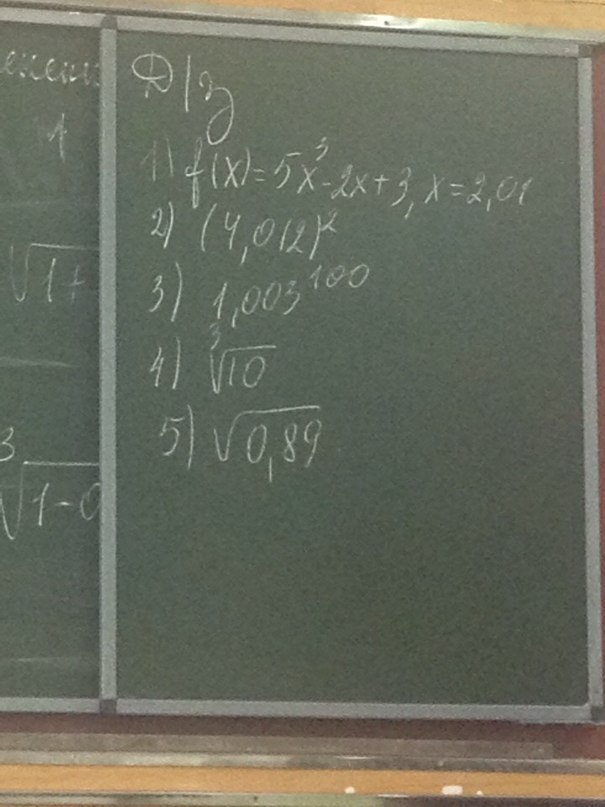 1
√1+
3
√1-0
Д/з
1) f(x)=5x³-2x+3, x=2,01
2) (4,012)²
3) 1,003¹⁰⁰
4) ³√10
5) √0,89